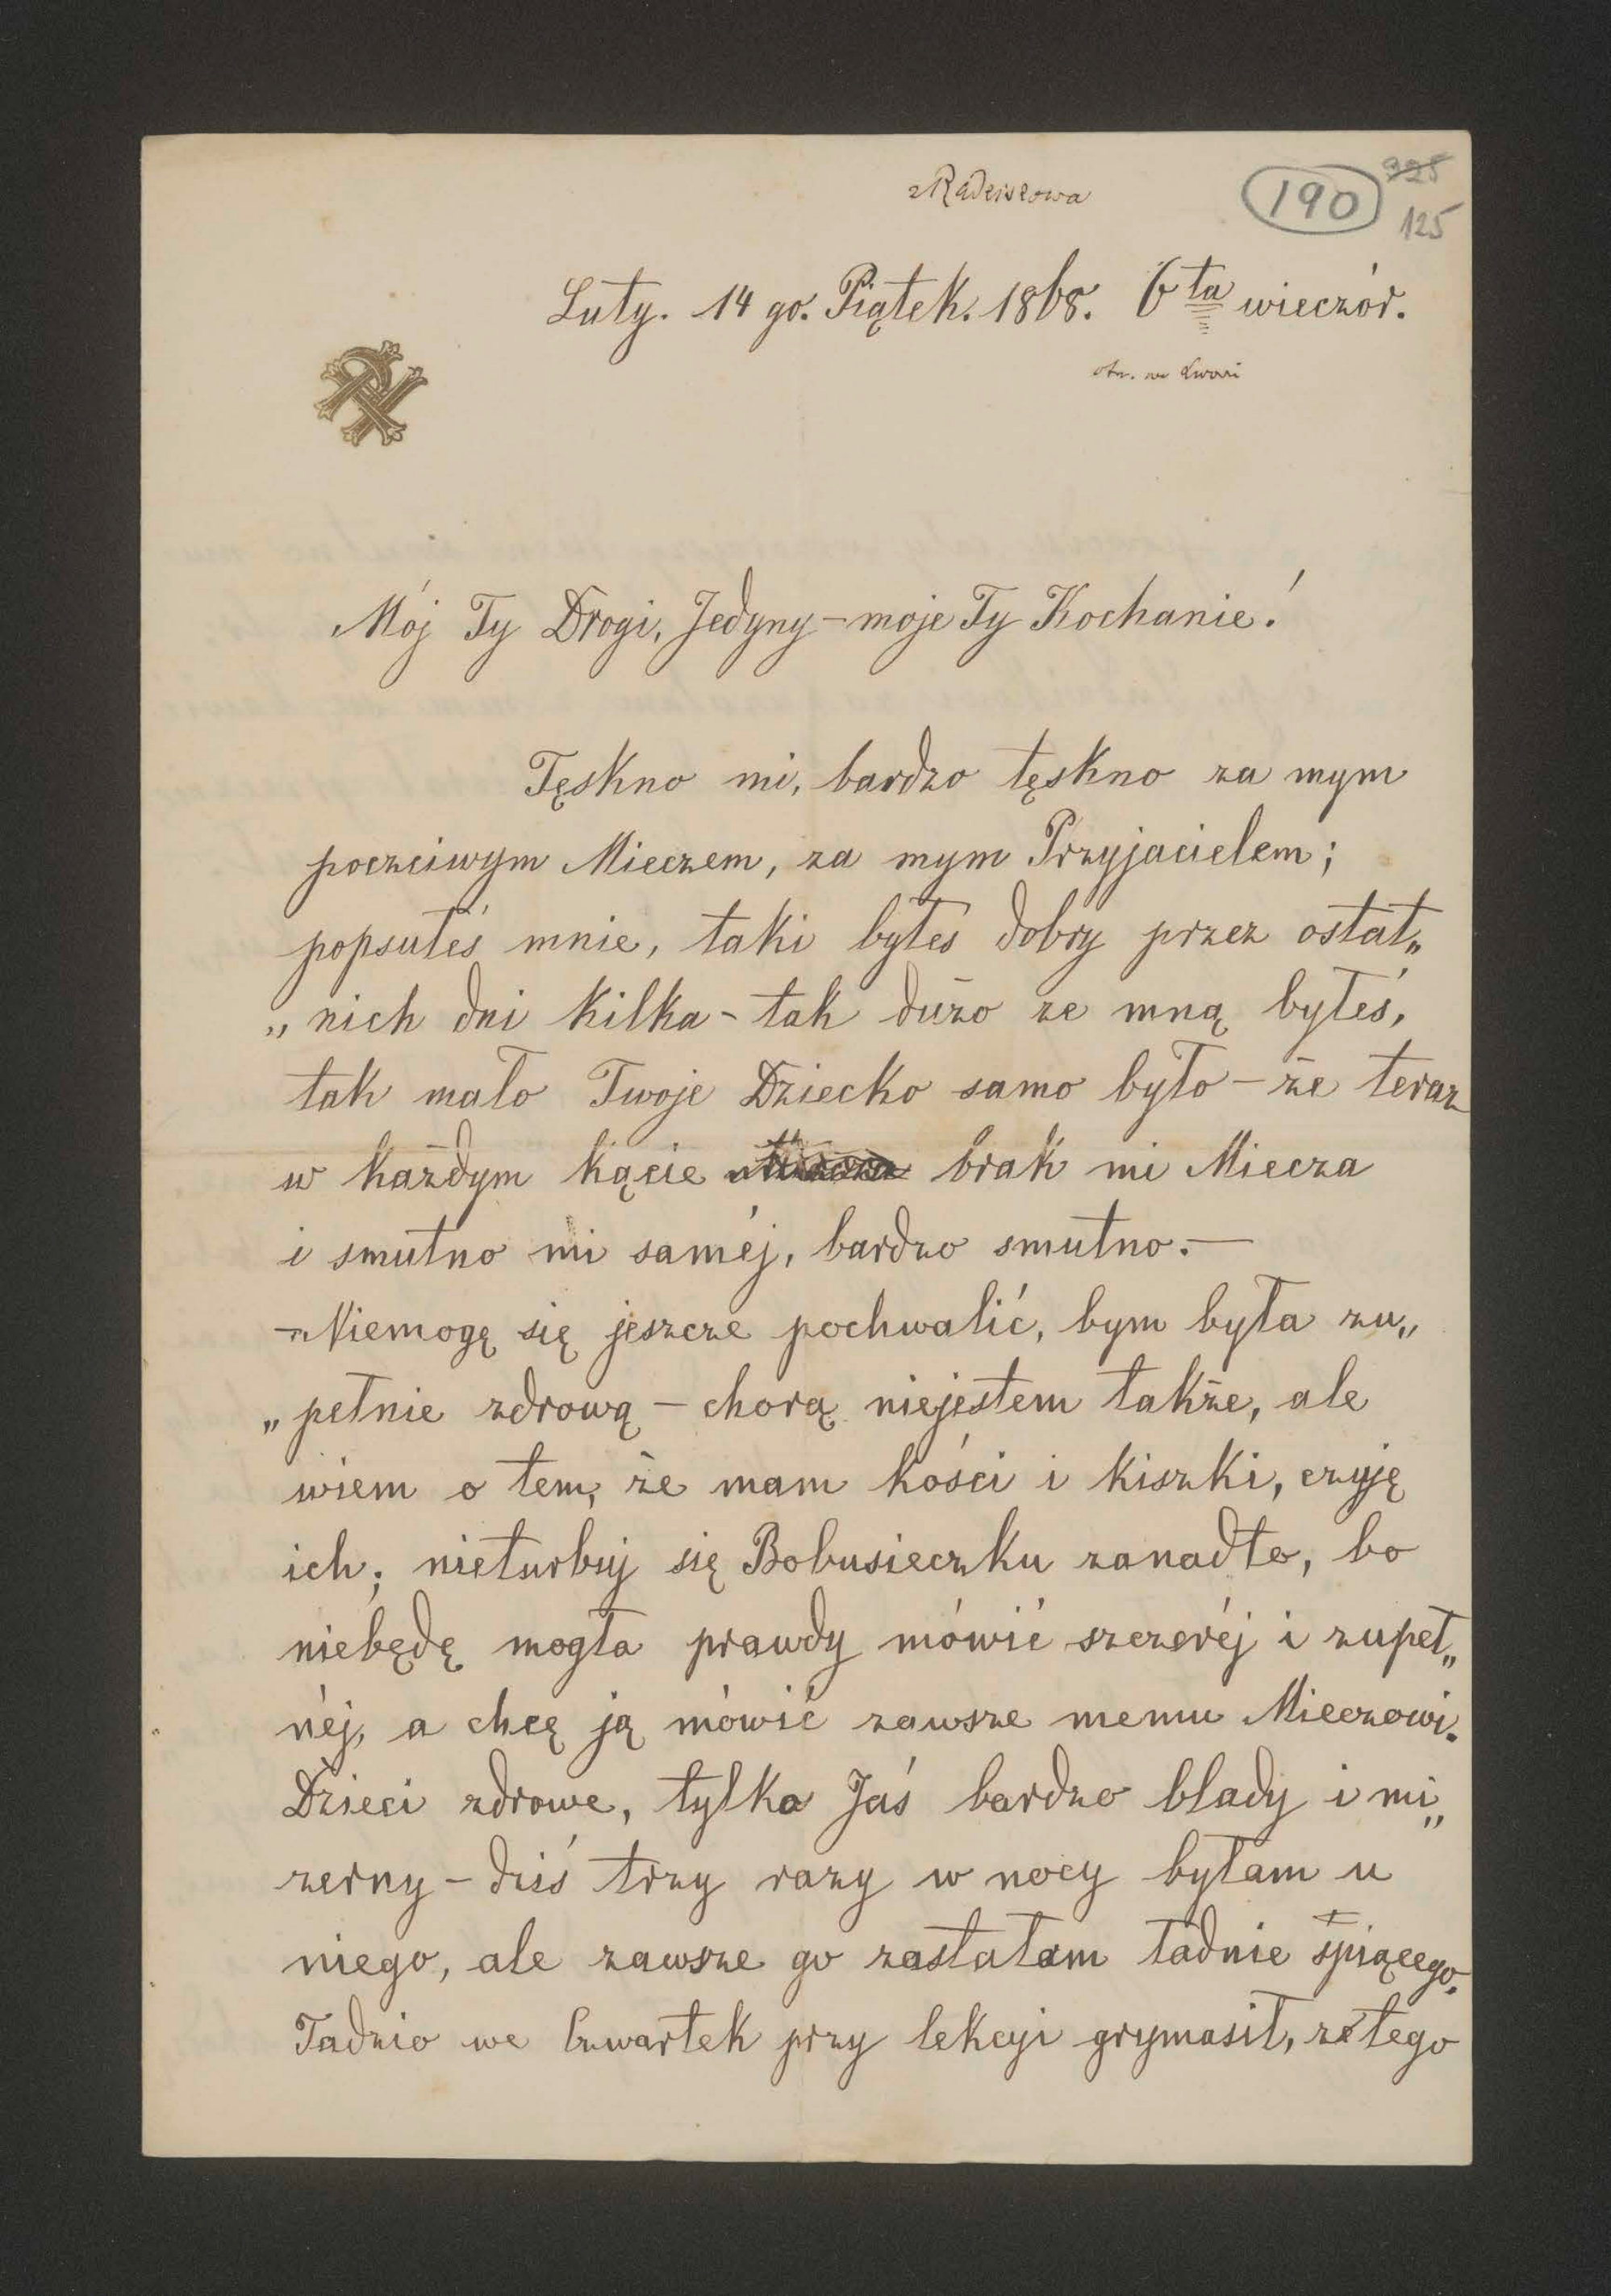 z Radziszowa
190
325
125
Luty. 14 go. Piątek. 1868. 6ta wieczór.
otrz. we Lwowi
Mój Ty Drogi, Jedyny – moje Ty Kochanie!
Tęskno mi, bardzo tęskno za mym
poczciwym Mieczem, za mym Przyjacielem;
popsułeś mnie, taki byłeś dobry przez ostat„
„nich dni kilka – tak dużo ze mną byłeś,
tak mało Twoje Dziecko samo było – że teraz
w każdym kącie brak mi Miecza
i smutno mi saméj, bardzo smutno. —
– Niemogę się jeszcze pochwalić, bym była zu„
„pełnie zdrową – chorą niejestem także, ale
wiem o tem, że mam kości i kiszki, czyję
ich; nieturbuj się Bobusieczku zanadto, bo
niebędę mogła prawdy mówić szczeréj i zupeł„
néj, a chcę ją mówić zawsze memu Mieczowi.
Dzieci zdrowe, tylko Jaś bardzo blady i mi„
zerny – dziś trzy razy w nocy byłam u
niego, ale zawsze go zastałam ładnie śpiącego.
Tadzio we Czwartek przy lekcyi grymasił, ze tego